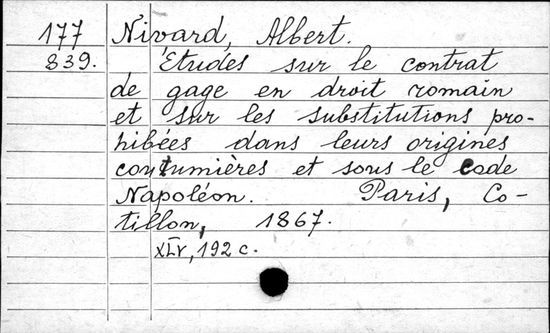 177 Nivard, Albert.
839. Etudes sur le contrat
de gage en droit romain
et sur les substitutions pro-
hibées dans leurs origines
coutumières et sous le code
Napoléon. Paris, Co-
tillon, 1867.
XLV, 192 c.